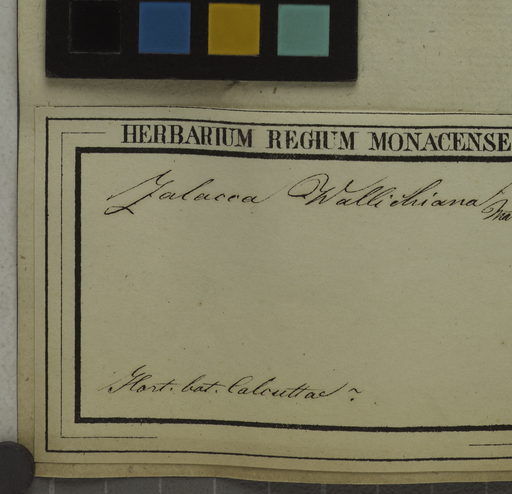 HERBARIUM REGIUM MONACENSE
Zalacca Wallichiana
Hort. bot. Calcuttae